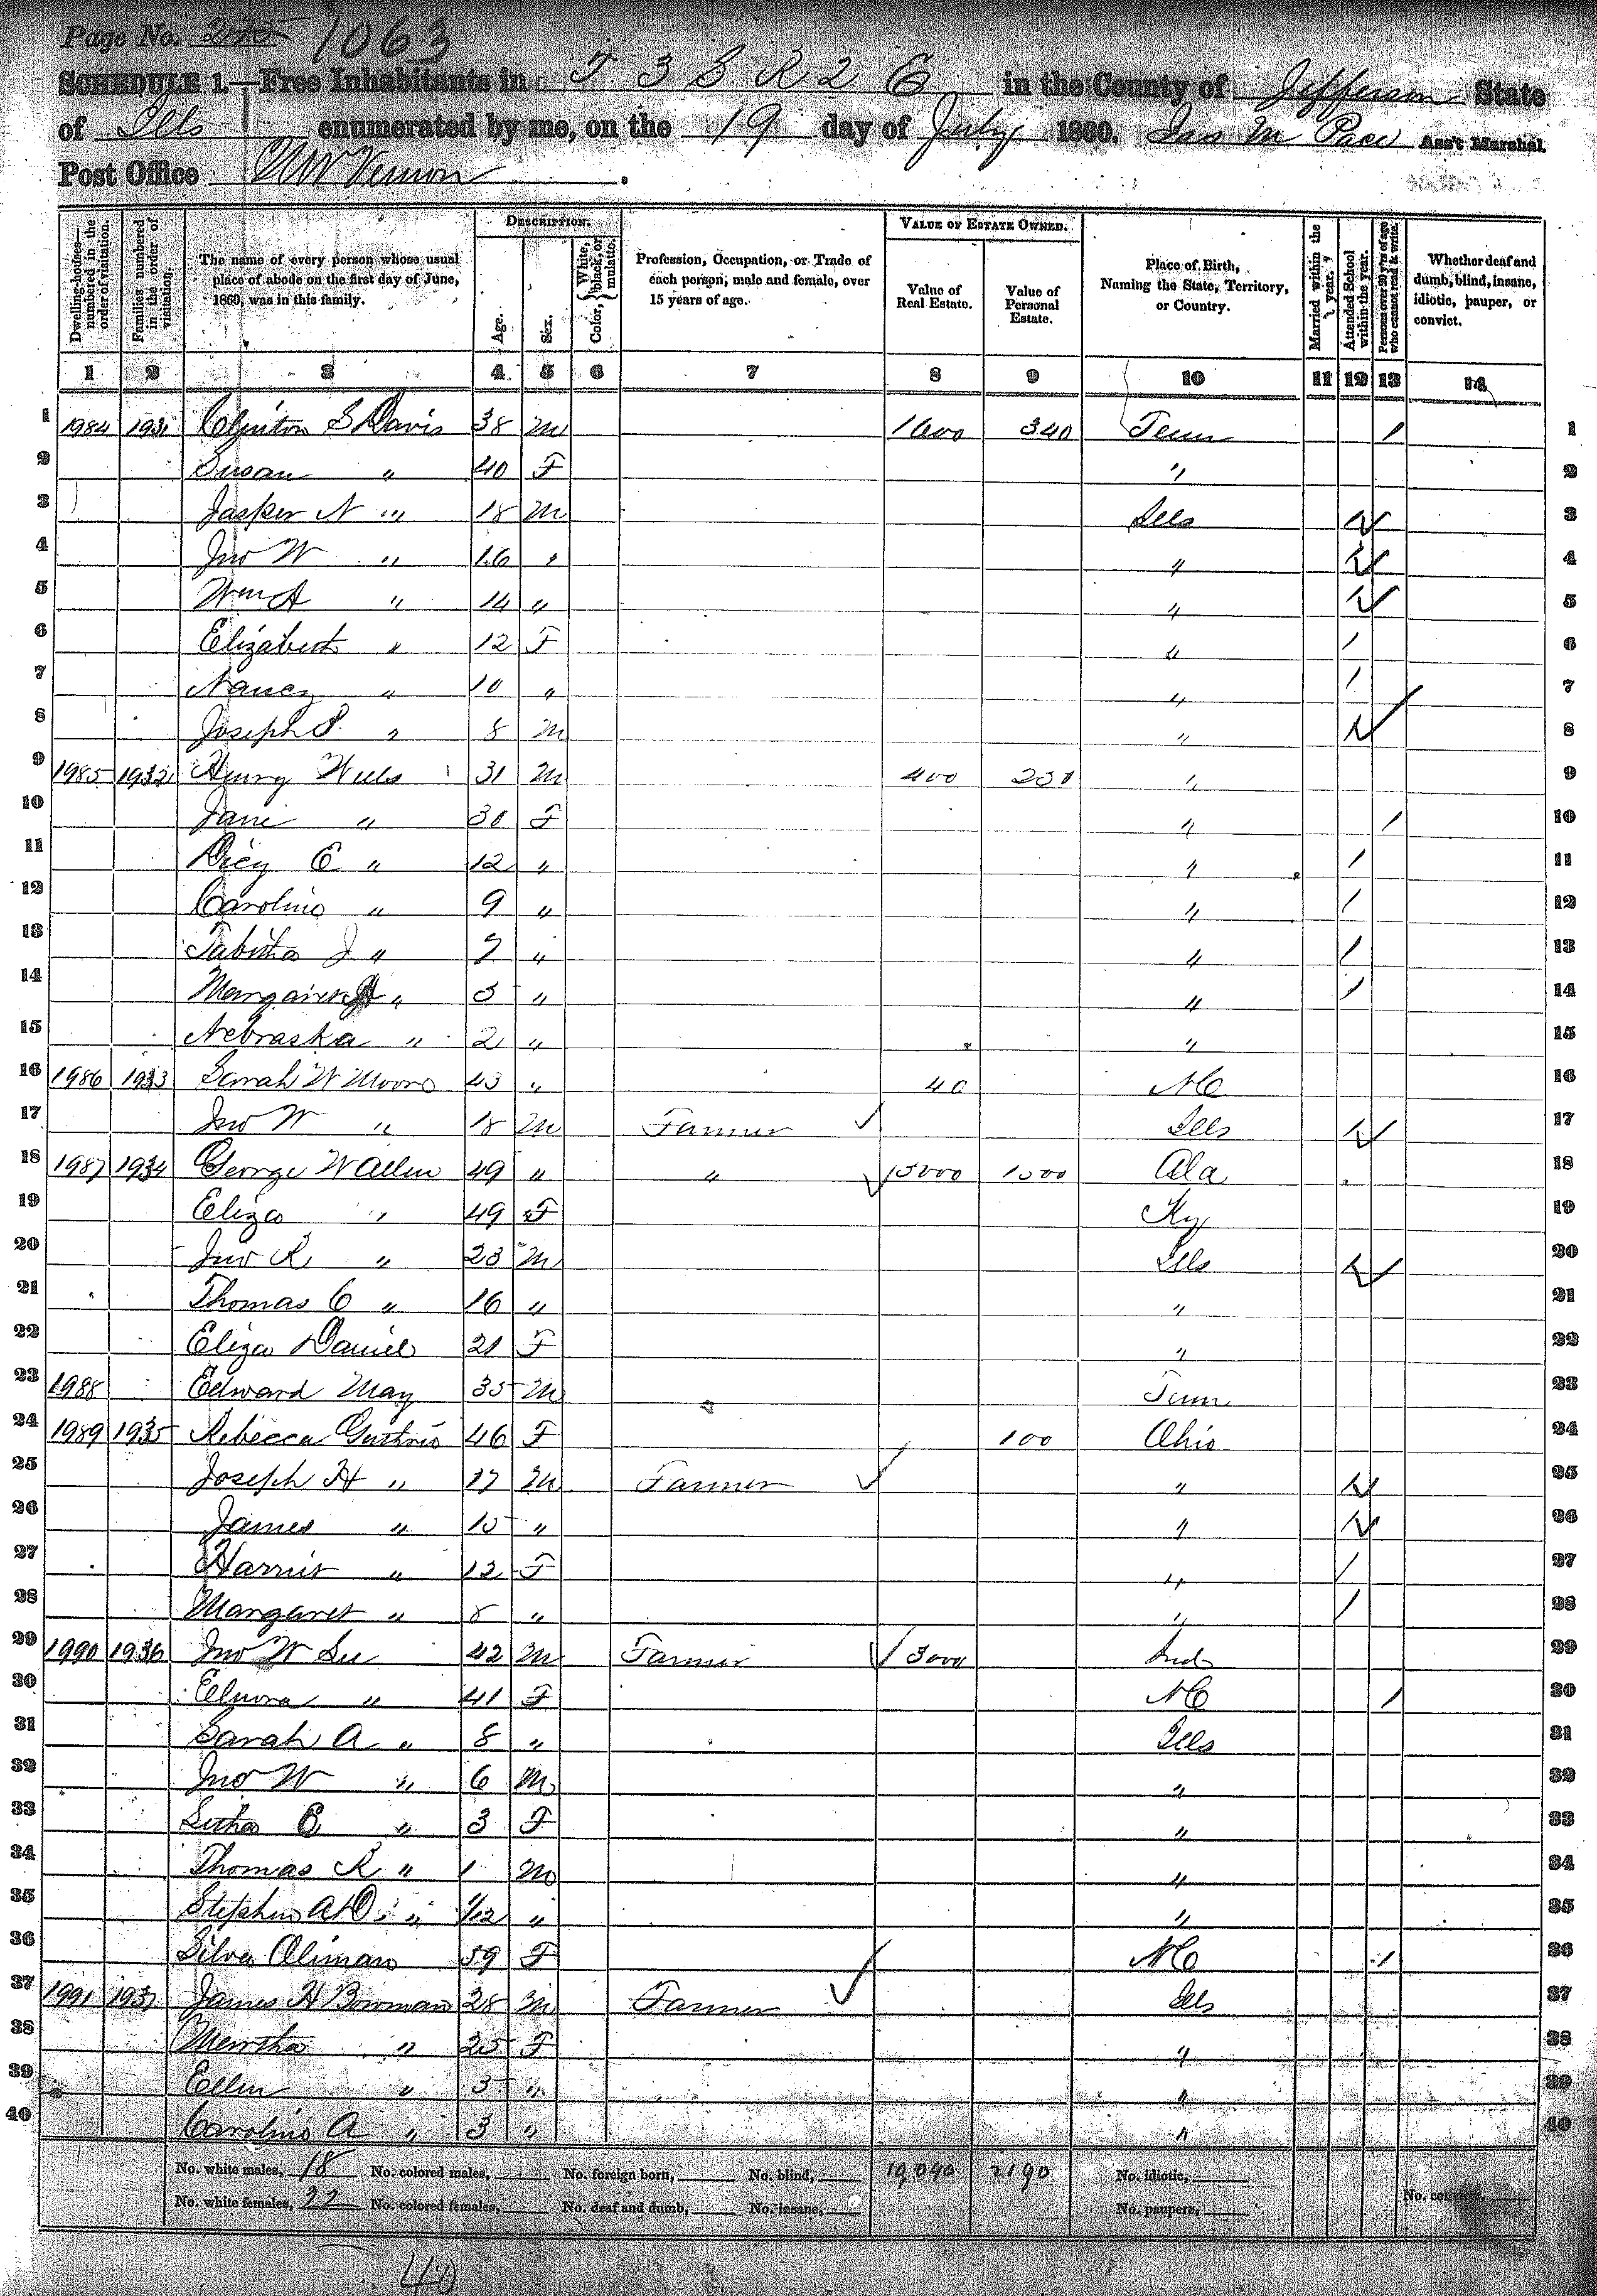 Page No. 225 1063
SCHEDULE 1.—Free Inhabitants in T 3 S R 2 E in the County of Jefferson State
of Ills enumerated by me, on the 19 day of July 1860. Jas M Pace Ass't Marshal.
Post Office Mt Vernon.
Dwelling-houses—numbered in the order of visitation.
Families numbered in the order of visitation.
The name of every person whose usual place of abode on the first day of June, 1860, was in this family.
DESCRIPTION.
Age.
Sex.
Color, { White, black, or mulatto.
Profession, Occupation, or Trade of each person, male and female, over 15 years of age.
VALUE OF ESTATE OWNED.
Value of Real Estate.
Value of Personal Estate.
Place of Birth, Naming the State, Territory, or Country.
Married within the year.
Attended School within the year.
Persons over 20 y'rs of age who cannot read & write.
Whether deaf and dumb, blind, insane, idiotic, pauper, or convict.
1 2 3 4 5 6 7 8 9 10 11 12 13 14
1 1984 1931 Clinton S Davis 38 M 1600 340 Tenn / 1
2 Susan " 40 F " 2
3 Jasper N " 18 M Ills / 3
4 Jno W " 16 " " / 4
5 Wm A " 14 " " / 5
6 Elizabeth " 12 F " / 6
7 Nancy " 10 " " / 7
8 Joseph P. " 8 M " / 8
9 1985 1932 Henry Wells 31 M 400 " 9
10 Jane " 30 F " / 10
11 Dicy E " 12 " " / 11
12 Caroline " 9 " " / 12
13 Tabitha J " 7 " " / 13
14 Margaret " 5 " " / 14
15 Nebraska " 2 " " 15
16 1986 1933 Sarah W Moore 43 " 40 NC 16
17 Jno W " 18 M Farmer Ills / 17
18 1987 1934 George W Allen 49 " " 15000 1500 Ala 18
19 Eliza " 49 F Ky 19
20 Jno R " 23 M Ills / 20
21 Thomas C " 16 " " 21
22 Eliza Daniel 21 F " 22
23 1988 Edward May 35 M Tenn 23
24 1989 1935 Rebecca Guthrie 46 F 100 Ohio 24
25 Joseph H " 17 M Farmer " / 25
26 James " 15 " " / 26
27 Harriet " 12 F " / 27
28 Margaret " 8 " " / 28
29 1990 1936 Jno W Lee 42 M Farmer 3000 Ind 29
30 Elvira " 41 F NC / 30
31 Sarah A " 8 " Ills 31
32 Jno W " 6 M " 32
33 Litha E " 3 F " 33
34 Thomas R " 1 M " 34
35 Stephen A D " 1/12 " " 35
36 Silva 59 F NC / 36
37 1991 1937 James H Bowman 28 M Farmer Ills 37
38 " 25 F " 38
39 Ellen " 5 " " 39
40 Caroline A " 3 " " 40
No. white males, 18 No. colored males, No. foreign born, No. blind, 19,090 2190 No. idiotic,
No. white females, 22 No. colored females, No. deaf and dumb, No. insane, No. paupers, No. convicts,
40